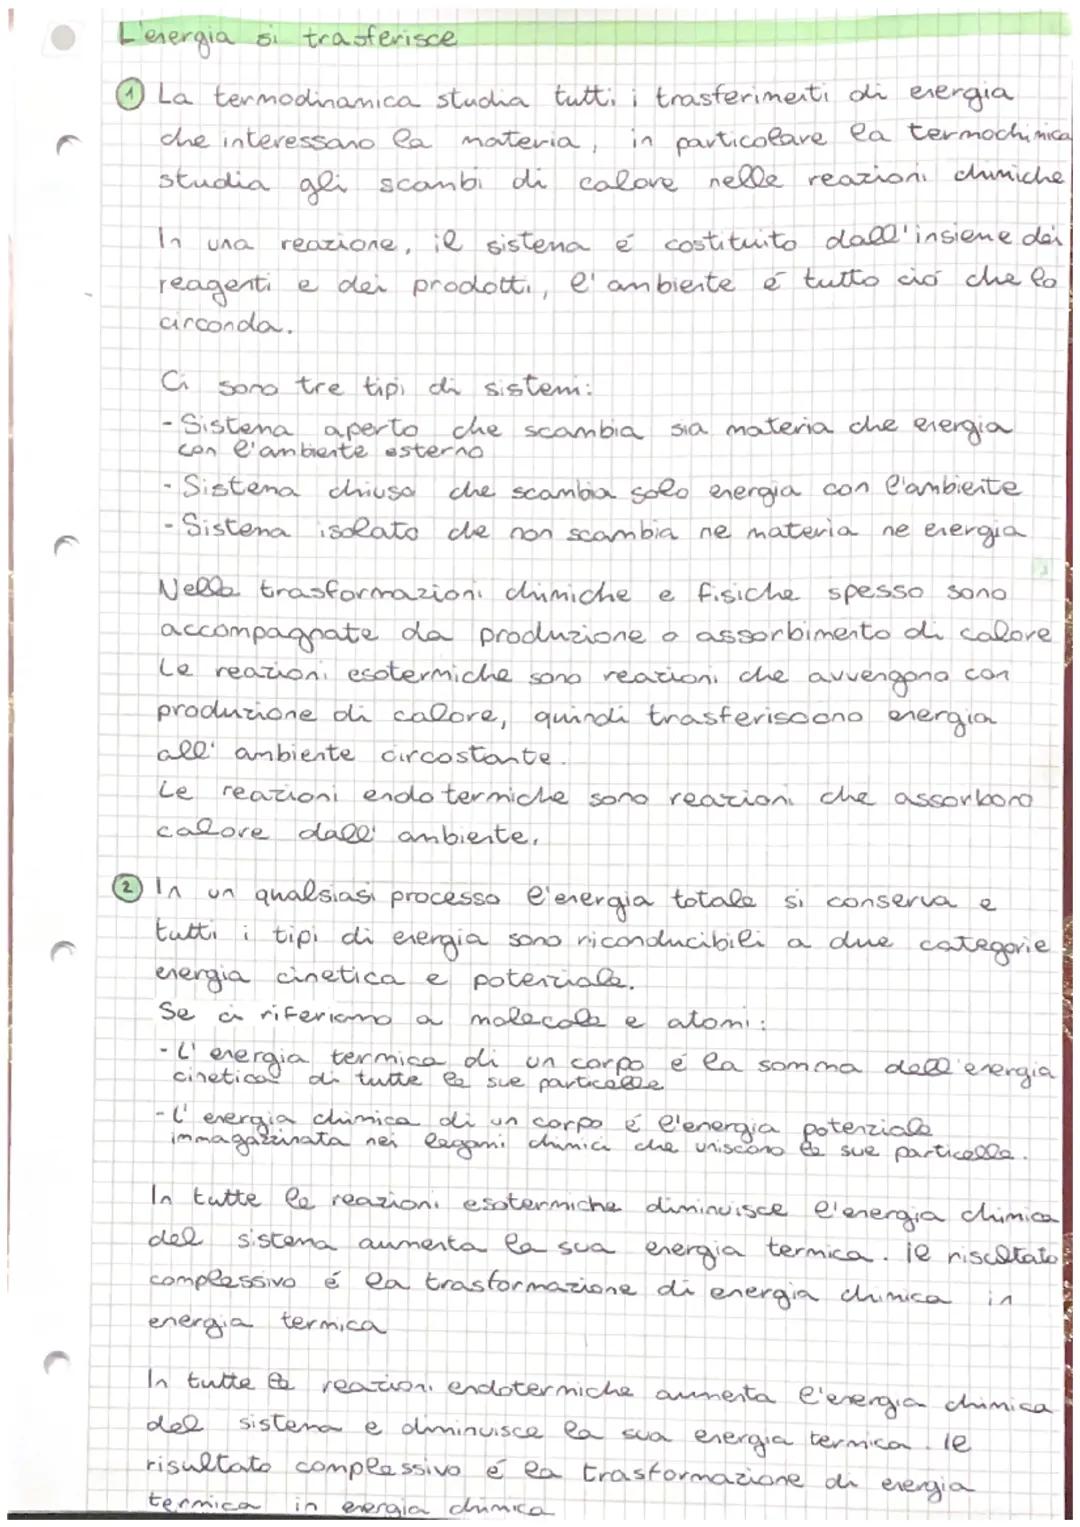 L'energia si trasferisce
1 La termodinamica studia tutti i trasferimenti di energia
che interessano la materia, in particolare la termochimica
studia gli scambi di calore nelle reazioni chimiche
In una reazione, il sistema é costituito dall'insieme dei
reagenti e dei prodotti, l'ambiente é tutto ció che lo
circonda.
Ci sono tre tipi di sistemi:
- Sistema aperto che scambia sia materia che energia
con l'ambiente esterno
- Sistema chiuso che scambia solo energia con l'ambiente
- Sistema isolato che non scambia ne materia ne energia
Nella trasformazioni chimiche e fisiche spesso sono
accompagnate da produzione o assorbimento di calore
Le reazioni esotermiche sono reazioni che avvengono con
produzione di calore, quindi trasferiscono energia
all'ambiente circostante.
Le reazioni endotermiche sono reazioni che assorbono
calore dall'ambiente.
2 In un qualsiasi processo l'energia totale si conserva e
tutti i tipi di energia sono riconducibili a due categorie
energia cinetica e potenziale.
Se ci riferiamo a molecole e atomi:
- L'energia termica di un corpo é la somma dell'energia
cinetica di tutte le sue particelle
- L'energia chimica di un corpo é l'energia potenziale
immagazzinata nei legami chimici che uniscono le sue particelle.
In tutte le reazioni esotermiche diminuisce l'energia chimica
del sistema aumenta la sua energia termica. Il riscltato
complessivo é la trasformazione di energia chimica in
energia termica
In tutte le reazioni endotermiche aumenta l'energia chimica
del sistema e diminuisce la sua energia termica. Il
risultato complessivo é la trasformazione di energia
termica in energia chimica